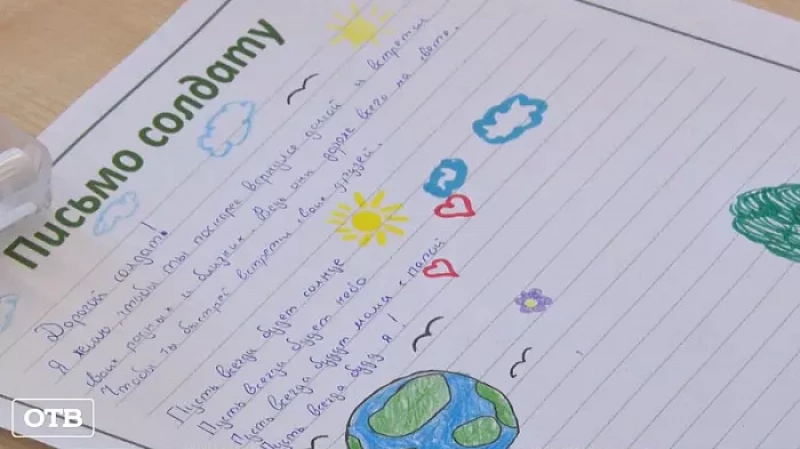 Письмо солдату
Дорогой солдат!
Я желаю, чтобы ты поскорее вернулся домой и встретил
своих родных и близких. Ведь они дороже всего на свете.
Чтобы ты быстрей встретил свои друзей.
Пусть всегда будет солнце
Пусть всегда будет небо
Пусть всегда будут мама с папой
Пусть всегда буду я!
ОТВ